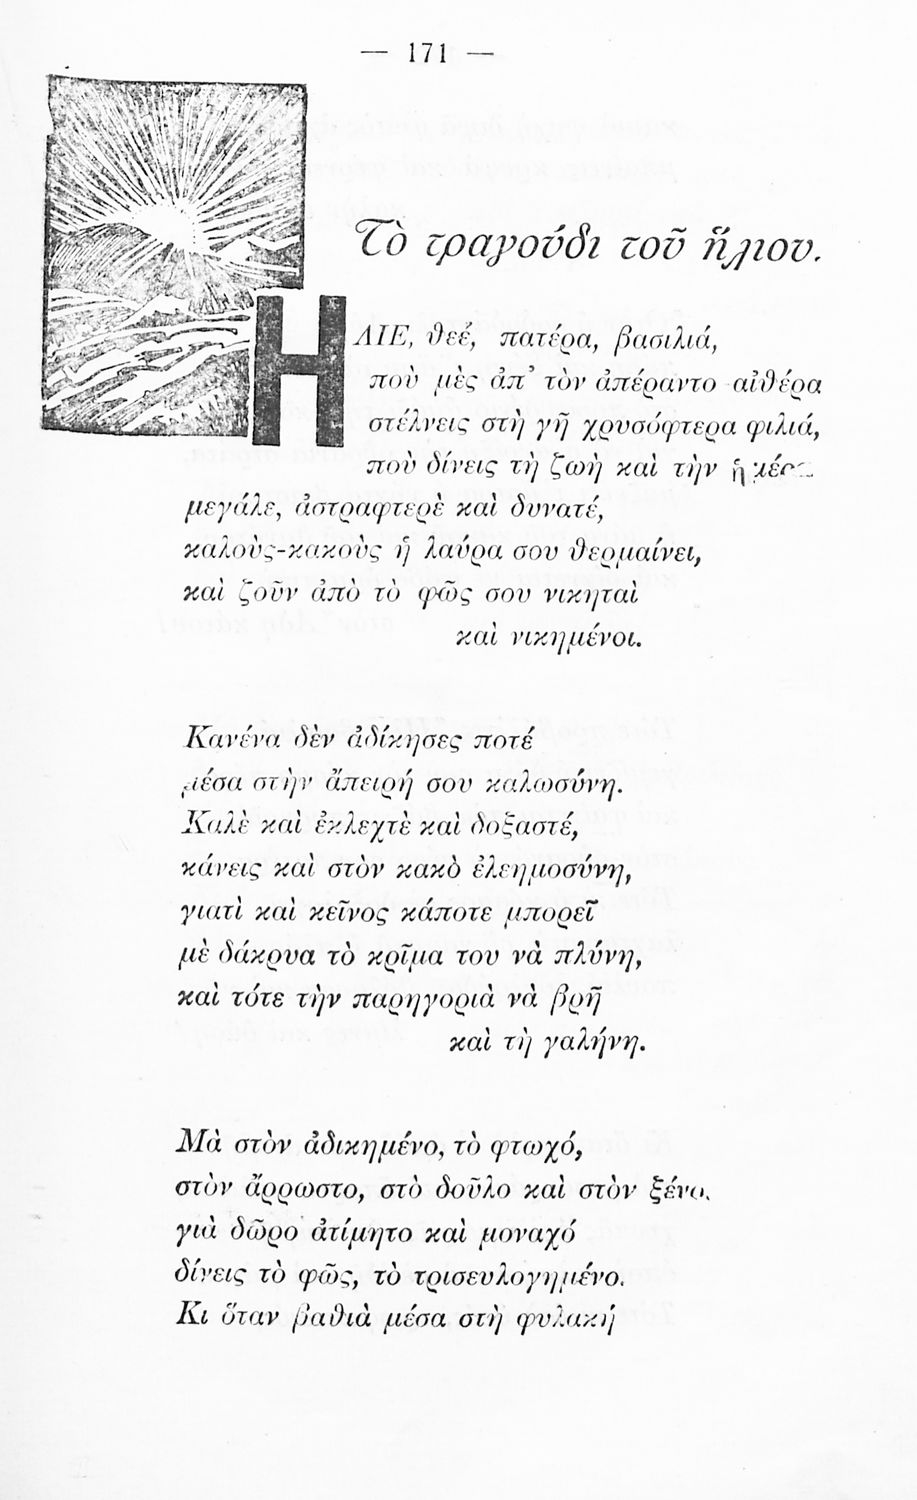 — 171 —
Τὸ τραγούδι τοῦ ἥλιου.
ΗΛΙΕ, θεέ, πατέρα, βασιλιά,
ποὺ μὲς ἀπ' τὸν ἀπέραντο αἰθέρα
στέλνεις στὴ γῆ χρυσόφτερα φιλιά,
ποὺ δίνεις τὴ ζωὴ καὶ τὴν ἡμέρα
μεγάλε, ἀστραφτερὲ καὶ δυνατέ,
καλοὺς-κακοὺς ἡ λαύρα σου θερμαίνει,
καὶ ζοῦν ἀπὸ τὸ φῶς σου νικηταὶ
καὶ νικημένοι.
Κανένα δὲν ἀδίκησες ποτέ
μέσα στὴν ἄπειρή σου καλωσύνη.
Καλὲ καὶ ἐκλεχτὲ καὶ δοξαστέ,
κάνεις καὶ στὸν κακὸ ἐλεημοσύνη,
γιατὶ καὶ κεῖνος κάποτε μπορεῖ
μὲ δάκρυα τὸ κρῖμα του νὰ πλύνη,
καὶ τότε τὴν παρηγοριὰ νὰ βρῆ
καὶ τὴ γαλήνη.
Μὰ στὸν ἀδικημένο, τὸ φτωχό,
στὸν ἄρρωστο, στὸ δοῦλο καὶ στὸν ξένο,
γιὰ δῶρο ἀτίμητο καὶ μοναχό
δίνεις τὸ φῶς, τὸ τρισευλογημένο.
Κι ὅταν βαθιὰ μέσα στὴ φυλακή